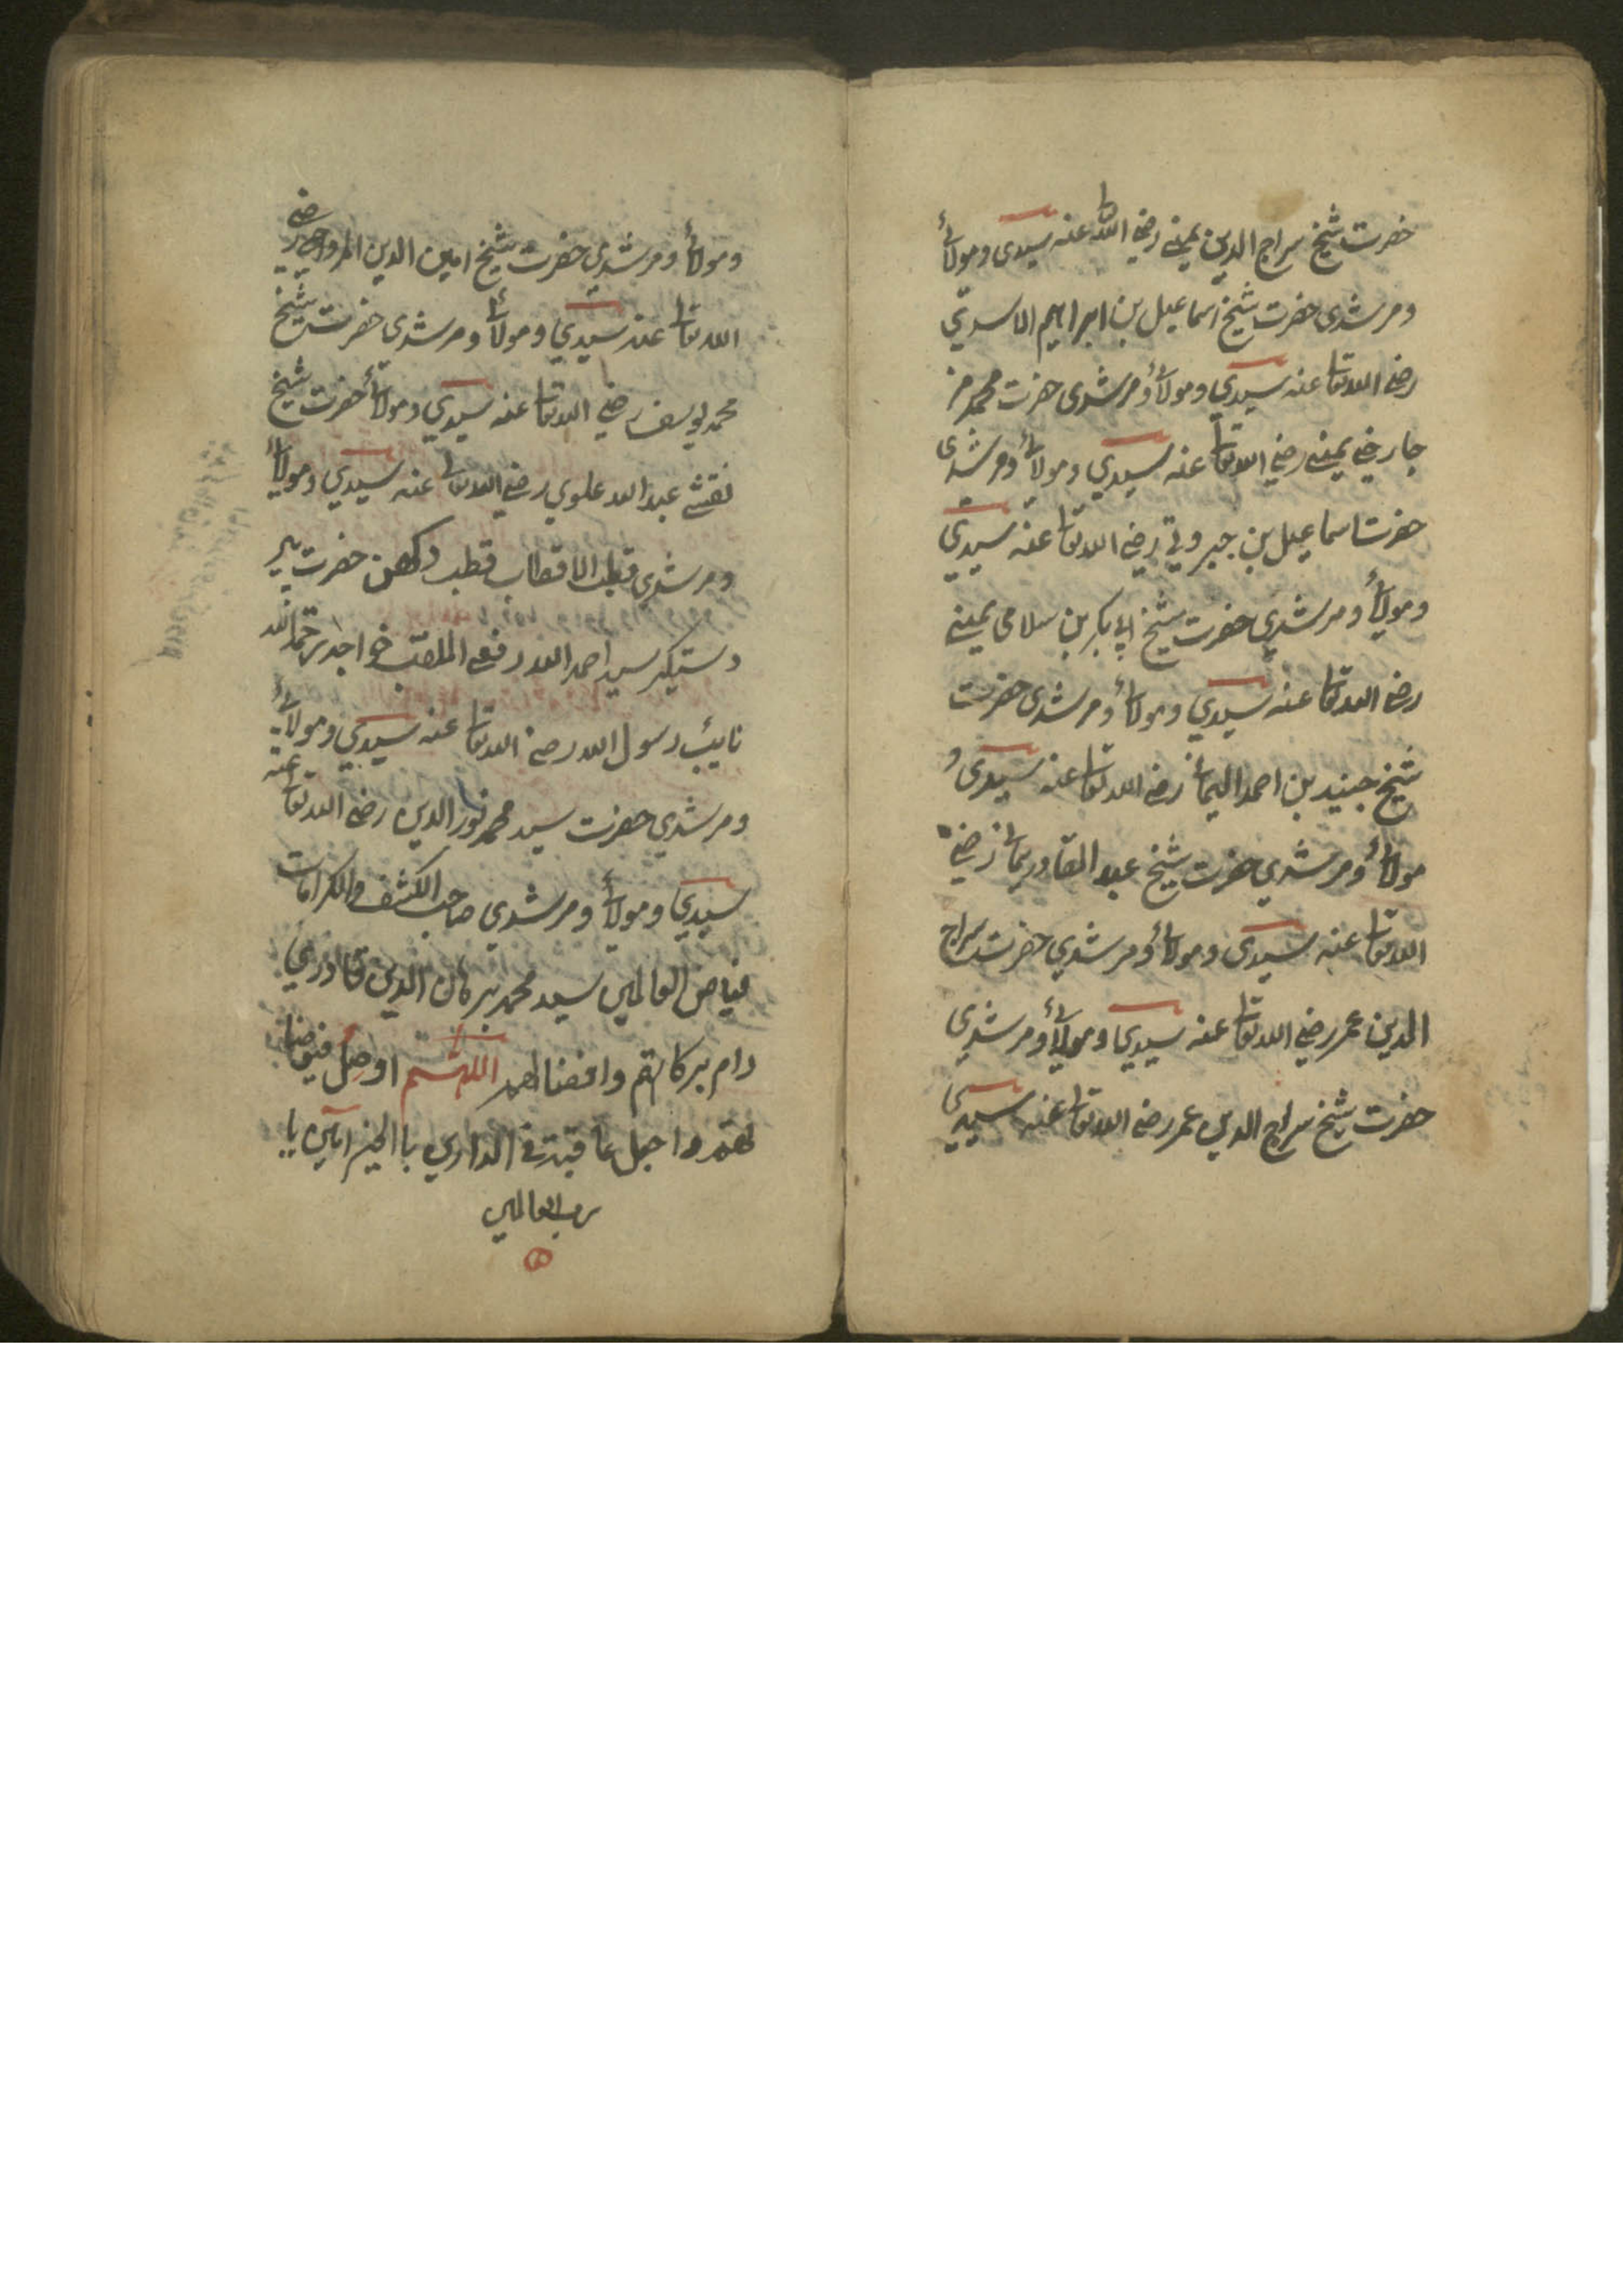 حضرت شیخ سراج الدین یمنے رضے اللہ عنہ سیدی ومولائ
ومرشدی حضرت شیخ اسماعیل بن ابراہیم الاسدی
رضے اللہ تعا عنہ سیدی ومولائ ومرشدی حضرت محمد
یمنے رضے اللہ تعا عنہ سیدی ومولائ ومرشدی
حضرت اسماعیل بن جبروتی رضے اللہ تعا عنہ سیدی
ومولائ ومرشدی حضرت شیخ ابی بکر بن سلامی یمینے
رضے اللہ تعا عنہ سیدی ومولائ ومرشدی حضرت
شیخ جنید بن احمد الیمانی رضے اللہ تعا عنہ سیدی و
مولائ ومرشدی حضرت شیخ عبد القادر یمانی رضے
اللہ تعا عنہ سیدی ومولائ ومرشدی حضرت سراج
الدین عمر رضے اللہ تعا عنہ سیدی ومولائ ومرشدی
حضرت شیخ سراج الدین عمر رضے اللہ تعا عنہ سیدی
ومولائ ومرشدی حضرت شیخ امین الدین رضے
اللہ تعا عنہ سیدی ومولائ ومرشدی حضرت شیخ
محمد یوسف رضے اللہ تعا عنہ سیدی ومولائ حضرت شیخ
عبد اللہ علوی رضے اللہ تعالی عنہ سیدی ومولائ
ومرشدی قطب الاقطاب قطب دکھن حضرت پیر
دستیگیر سید احمد اللہ رفعی الملقب خواجہ رحمة اللہ
نایب رسول اللہ رضے اللہ تعا عنہ سیدی ومولائ
ومرشدی حضرت سید محمد نور الدین رضے اللہ تعا عنہ
سیدی ومولائ ومرشدی صاحب الکشف والکرامات
فیاض العالمین سید محمد برہان الدین قادری
دام برکاتہم وافضالہم اللہم اوصل فیوضنا
واجعل عاقبتہ فی الدارین باالخیر امین یا
رب العالمین